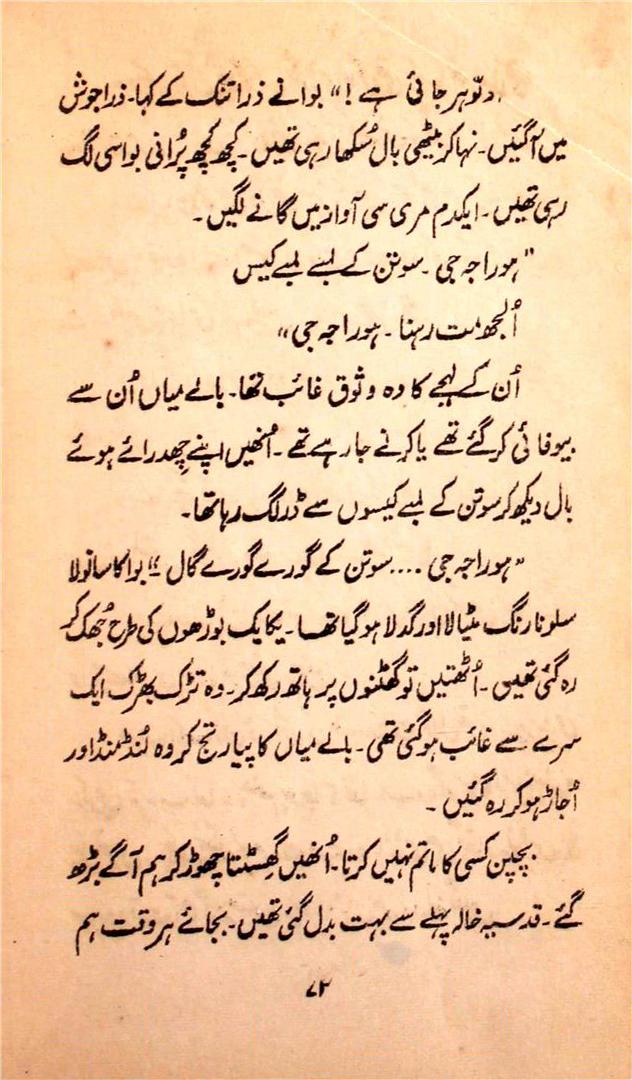 ”وہ تو ہرجائی ہے!“ بوا نے ذرا تنک کے کہا۔ ذرا جوش
میں آگئیں۔ نہا کر بیٹھی بال سُکھا رہی تھیں۔ کچھ کچھ پُرانی بوا سی لگ
رہی تھیں۔ ایکدم مری سی آواز میں گانے لگیں۔
”ہو راجہ جی۔ سوتن کے لمبے لمبے کیس
اُلجھ مت رہنا۔ ہو راجہ جی“
اُن کے لہجے کا وہ وثوق غائب تھا۔ بالے میاں اُن سے
بیوفائی کر گئے تھے یا کرنے جا رہے تھے۔ اُنھیں اپنے چِھدرائے ہوئے
بال دیکھ کر سوتن کے لمبے کیسوں سے ڈر لگ رہا تھا۔
”ہو راجہ جی.... سوتن کے گورے گورے گال“ بوا کا سانولا
سلونا رنگ مٹیالا اور گدلا ہوگیا تھا۔ یکایک بوڑھوں کی طرح جُھک کر
رہ گئی تھیں۔ اُٹھتیں تو گھٹنوں پر ہاتھ رکھ کر۔ وہ تڑک بھڑک ایک
سرے سے غائب ہوگئی تھی۔ بالے میاں کا پیار تج کر وہ لُنڈ مُنڈ اور
اُجاڑ ہو کر رہ گئیں۔
بچپن کسی کا ماتم نہیں کرتا۔ اُنھیں گِھسٹتا چھوڑ کر ہم آگے بڑھ
گئے۔ قدسیہ خالہ پہلے سے بہت بدل گئی تھیں۔ بجائے ہر وقت ہم
۷۳